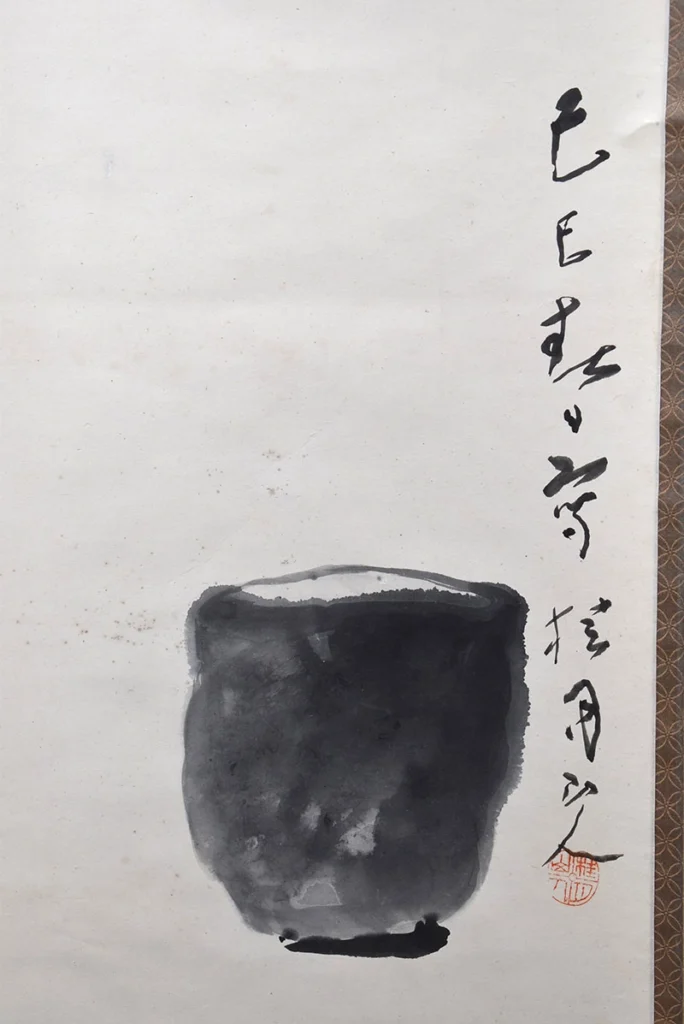 己巳春日写 桂月山人